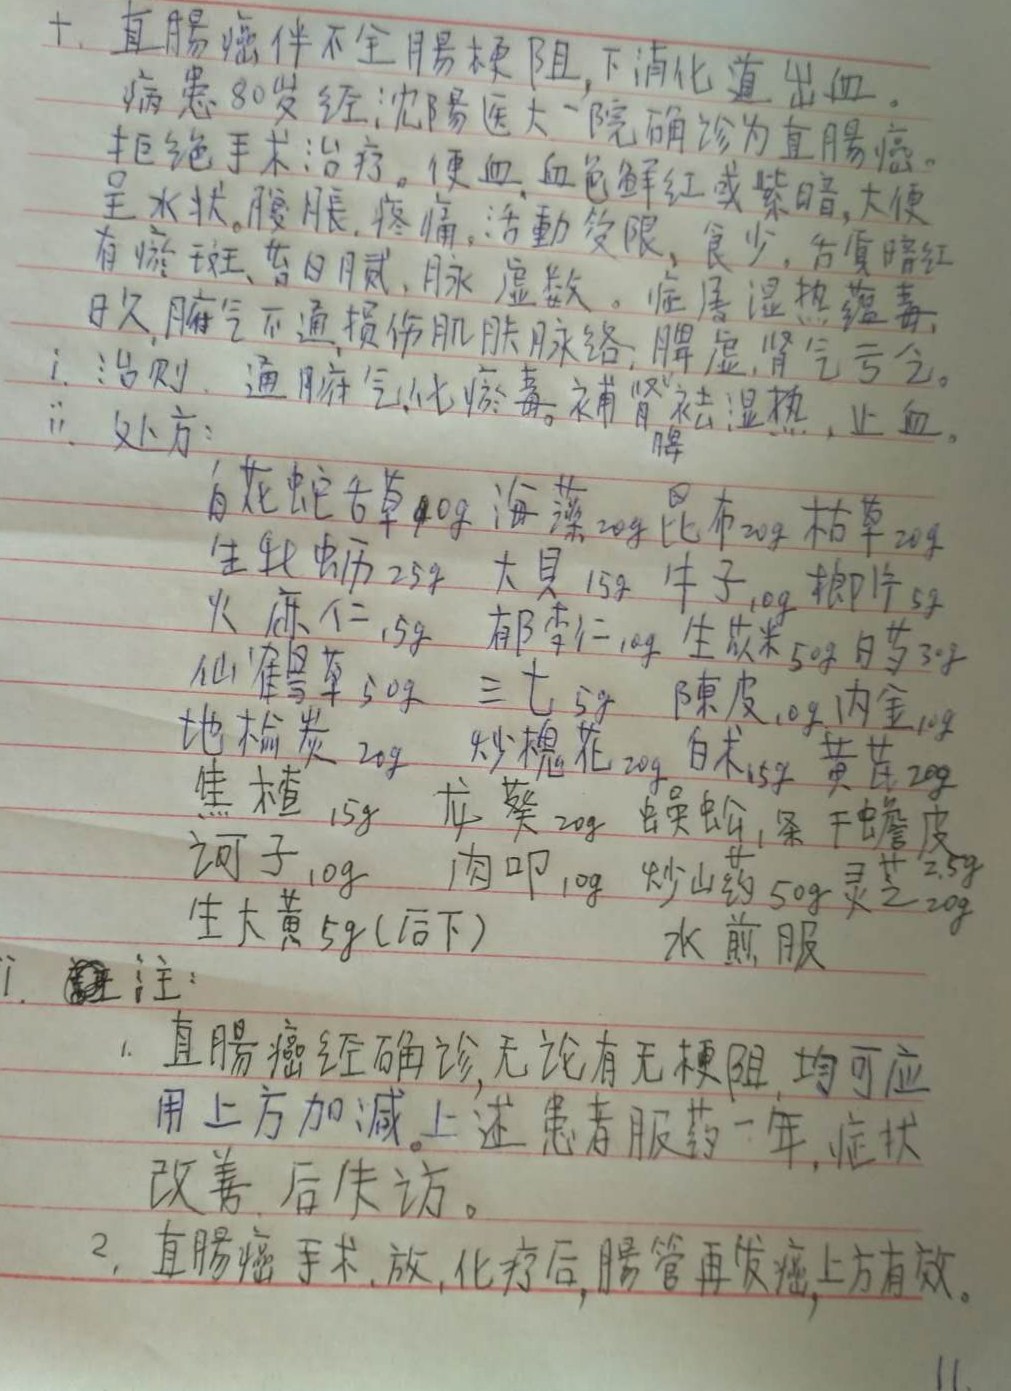 十、直腸癌伴不全腸梗阻,下消化道出血。
病患80岁经沈陽医大一院确诊为直腸癌。
拒绝手术治疗。便血,血色鲜红或紫暗,大便
呈水状。腹脹、疼痛,活動受限、食少,舌質暗红
有瘀斑、苔白腻,脉虚数。症属湿热蕴毒,
日久,腑气不通,损伤肌肤脉络,脾虚,肾气亏乏。
i. 治则 通腑气,化瘀毒。補肾脾祛湿热,止血。
ii. 处方:
白花蛇舌草40g 海藻20g 昆布20g 枯草20g
生牡蛎25g 大貝15g 牛子10g 榔片5g
火麻仁15g 郁李仁10g 生苡米50g 白芍30g
仙鹤草50g 三七5g 陳皮10g 内金10g
地榆炭20g 炒槐花20g 白术15g 黄芪20g
焦楂15g 龙葵20g 蜈蚣1条 干蟾皮2.5g
诃子10g 肉叩10g 炒山药50g 灵芝20g
生大黄5g(后下) 水煎服
注:
1. 直腸癌经确诊,无论有无梗阻,均可应
用上方加減。上述患者服药一年,症状
改善,后失访。
2. 直腸癌手术,放,化疗后,腸管再发癌,上方有效。
11.